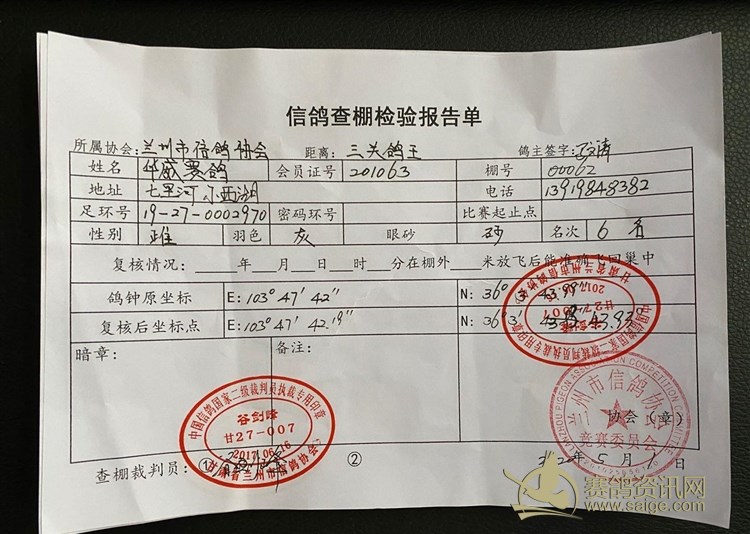 信鸽查棚检验报告单
所属协会:兰州市信鸽协会 距离:三关鸽王 鸽主签字:
姓名 伴威赛鸽 会员证号 201063 棚号 00062
地址 七里河小西湖 电话 13919848382
足环号 19-27-0002970 密码环号 比赛起止点
性别 雄 羽色 灰 眼砂 砂 名次 6名
复核情况: 年 月 日 时 分在棚外 米放飞后能准确飞回巢中
鸽钟原坐标 E:103°47′42″ N:36°3′
复核后坐标点 E:103°47′42.19″ N:36°3′
暗章: 备注:
甘肃省兰州市信鸽协会
2017.06.16
甘27-007
谷剑峰
中国信鸽国家二级裁判员执裁专用印章
中国信鸽国家二级裁判员执裁专用印章
谷剑峰
甘27-007
2017.06.16
甘肃省兰州市信鸽协会
兰州市信鸽协会
LANZHOU PIGEON ASSOCIATION COMPETITION COMMITTEE
竞赛委员会
协会(章)
查棚裁判员:① ② 年5月 日
赛鸽资讯网
www.saige.com